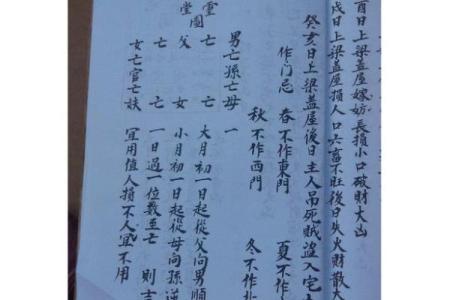 酉日上梁盖屋嫁妨長損小口破財大凶
戌日上梁盖屋損人口六畜不旺後日失火財散大
癸亥日上梁盖屋後日主人吊死賊盗入宅大
作门忌 春不作東門 夏不作
秋不作西門 冬不作
男亡孫亡母一
靈 亡 亡 大月初一日起從父向男順
圖
堂 父 女 小月初一日起從母向孫逆
亡 亡 一日過一位数至亡 則吉
女亡官亡妹 宜用值人損不人宜不用